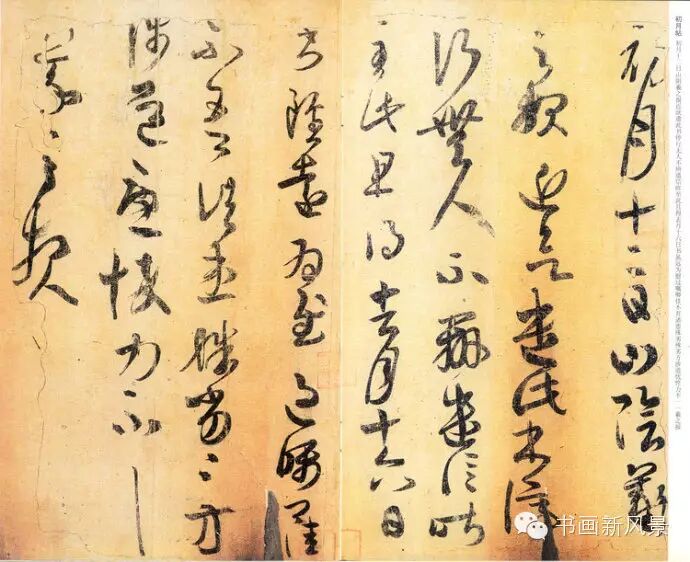 初月帖 初月十二日山阴羲之报近欲遣此书停行无人不办遣信昨至此且得去月十六日书虽远为慰过嘱卿佳不吾诸患殊劣殊劣方涉道忧悴力不一一羲之报
初月十二日山陰羲
之報近欲遣此書停
行無人不辦遣信昨
至此且得去月十六日
書雖遠為慰過囑卿佳
不吾諸患殊劣劣方
涉道憂悴力不一一
羲之報
书画新风景